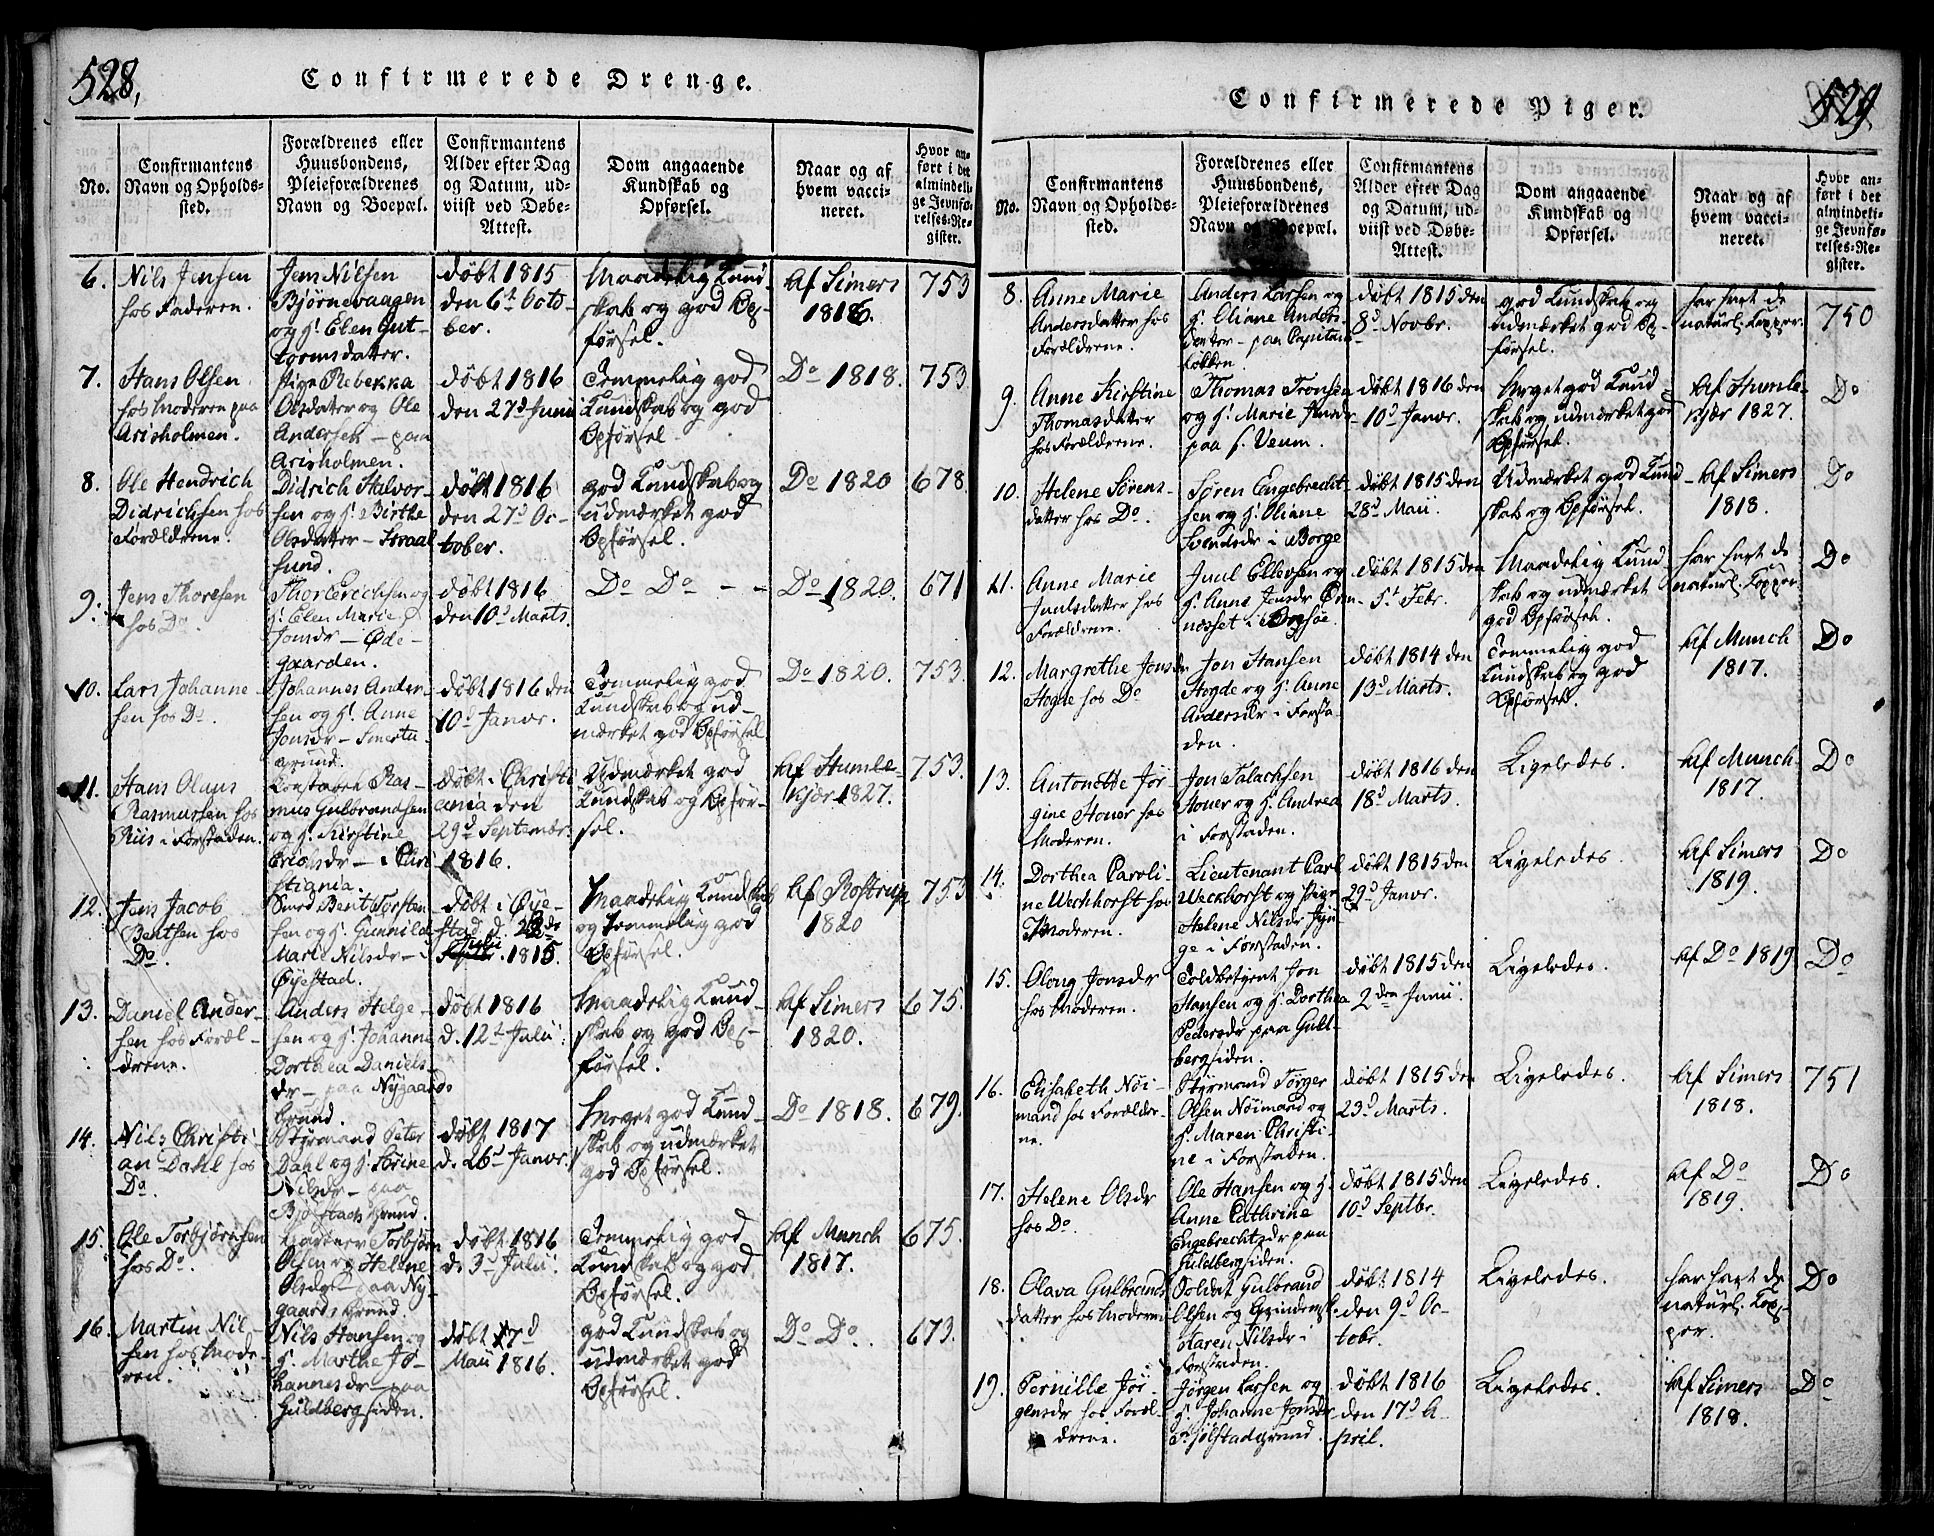 528,
Confirmerede Drenge.
No.
Confirmantens
Navn og Opholds-
sted.
Forældrenes eller
Huusbondens,
Pleieforældrenes
Navn og Boepæl.
Confirmantens
Alder efter Dag
og Datum, ud-
viist ved Døbe-
Attest.
Dom angaaende
Kundskab og
Opførsel.
Naar og af
hvem vacci-
neret.
Hvor an-
ført i det
almindeli-
ge Jevnfø-
relses-Re-
gister.
6.
Nils Jensen
hos Faderen.
Jens Nilsen
Bjørnevaagen
og H. Elen Gut-
tormsdatter.
døbt 1815
den 6t Octo-
ber.
Maadelig Kund-
skab og god Op-
førsel.
Af Simers
1816.
753
7.
Hans Olsen
hos Moderen paa
Arisholmen.
Pige Rebekka
Olsdatter og Ole
Andersen – paa
Arisholmen.
døbt 1816
den 27d Junii
Temmelig god
Kundskab og god
Opførsel.
Do 1818.
753.
8.
Ole Hendrich
Didrichsen hos
Forældrene.
Didrich Halvor-
sen og H. Birthe
Olsdatter – Straal
sund.
døbt 1816
den 27d Oc-
tober.
god Kundskab og
udmærket god
Opførsel.
Do 1820
678.
9.
Jens Thoresen
hos Do.
Thor Erichsen og
H. Elen Marie
Jonsdr – Øde-
gaarden.
døbt 1816
den 10d Marts.
Do Do – –
Do 1820.
671
10.
Lars Johanne-
sen hos Do.
Johannes Ander-
sen og H. Anne
Jonsdr – Smertu-
grund.
døbt 1816 den
10d Janvr.
Temmelig god
Kundskab og ud-
mærket god Opførsel
Do 1820.
753.
11.
Hans Olaus
Rasmussen hos
Riis i Forstaden.
Konstabel Ras-
mus Gulbrandsen
og H. Kirstine
Erichsdr – i Chri-
stiania.
døbt i Christi
ania den
29d Septembr.
1816.
Udmærket god
Kundskab og Opfør-
sel.
Af Humle-
kjær 1827.
753.
12.
Jens Jacob
Bentsen hos
Do.
Smed Bent Torsten-
sen og H. Gunnild
Marie Nilsdr – i
Øyestad.
døbt i Øye-
stad d. 28de
Julii 1815.
Maadelig Kundskab
og temmelig god
Opførsel.
Af Rostrup
1820
753
13.
Daniel Ander-
sen hos Foræl-
drene.
Anders Helge-
sen og H. Johanne
Dorthea Daniels-
dr – paa Nygaards
Grund.
døbt 1816
d. 12t Julii.
Maadelig Kund-
skab og god Op-
førsel.
Af Simers
1820.
675.
14.
Nils Christi-
an Dahl hos
Do.
Styrmand Peter
Dahl og H. Sørine
Nilsdr – paa
Bjøstads Grund.
døbt 1817
d. 26d Janvr.
Meget god Kund-
skab og udmærket
god Opførsel.
Do 1818.
679.
15.
Ole Torbjørnsen
hos Do.
Torbjørn
Olsen og Helene
Olsdr – paa Ny-
gaards Grund.
døbt 1816
d. 3d Julii.
Temmelig god
Kundskab og god
Opførsel.
Af Munch
1817.
675.
16.
Martin Nil-
sen hos Mode-
ren.
Nils Hansen og
H. Marthe Jo-
hannesdr – paa
Guldbergsiden.
døbt 17d
Maii 1816.
god Kundskab og
udmærket god
Opførsel.
Do Do.
673.
529
Confirmerede Piger.
No.
Confirmantens
Navn og Opholds-
sted.
Forældrenes eller
Huusbondens,
Pleieforældrenes
Navn og Boepæl.
Confirmantens
Alder efter Dag
og Datum, ud-
viist ved Døbe-
Attest.
Dom angaaende
Kundskab og
Opførsel.
Naar og af
hvem vacci-
neret.
Hvor an-
ført i det
almindeli-
ge Jevnfø-
relses-Re-
gister.
8.
Anne Marie
Andersdatter hos
Forældrene.
Anders Larsen og
H. Oliane Anders-
datter – paa Capitain-
løkken.
døbt 1815 den
8d Novbr.
god Kundskab og
udmærket god Op-
førsel.
har havt de
naturl. Kopper.
750
9.
Anne Kirstine
Thomasdatter
hos Forældrene.
Thomas Tronsen
og H. Marie Jensdr
paa S. Veum.
døbt 1816 den
10d Janvr.
Meget god Kund-
skab og udmærket god
Opførsel.
Af Humle-
kjær 1827.
Do
10.
Helene Sørens-
datter hos Do.
Søren Engebrecht-
sen og H. Oliane
Svendsdr i Borge
døbt 1815 den
28d Maii.
Udmærket god Kund-
skab og Opførsel.
Af Simers
1818.
Do
11.
Anne Marie
Juulsdatter hos
Forældrene.
Juul Ellevsen og
H. Anne Jensdr Ørn-
næsset i Onsøe.
døbt 1815 den
5t Febr.
Maadelig Kund-
skab og udmærket
god Opførsel.
har havt de
naturl. Kopper.
Do
12.
Margrethe Jonsdr
Hogde hos Do
Jon Hansen
Hogde og H. Anne
Andersdr i Forsta-
den.
døbt 1814 den
13d Marts.
Temmelig god
Kundskab og god
Opførsel.
Af Munch
1817.
Do
13.
Antonette Jør-
gine Houer hos
Moderen.
Jon Palachsen
Houer og H. Andrea
i Forstaden.
døbt 1816 den
18d Marts.
Ligeledes.
Af Munch
1817.
Do
14.
Dorthea Caroli-
ne Weckhorst hos
Moderen.
Lieutenant Carl
Weckhorst og Pige
Helene Nilsdr
i Forstaden.
døbt 1815 den
29d Janvr.
Ligeledes.
Af Simers
1819.
Do
15.
Aloug Jonsdr
hos Moderen.
Toldbetjent Jon
Hansen og H. Dorthea
Pedersdr paa Guld-
bergsiden.
døbt 1815 den
2den Junii.
Ligeledes.
Af Do 1819
Do
16.
Elisabeth Nøi-
mand hos Forældre-
ne.
Styrmand Torger
Olsen Nøimand og
H. Maren Christi-
ne i Forstaden.
døbt 1815 den
23d Marts.
Ligeledes.
Af Simers
1818.
751
17.
Helene Olsdr
hos Do.
Ole Hansen og H.
Anne Cathrine
Engebrechtsdr paa
Guldbergsiden.
døbt 1815 den
10d Septbr.
Ligeledes.
Af Do
1819.
Do
18.
Olava Gulbrands-
datter hos Moderen
Soldat Gulbrand
Olsen og Qvindemsk.
Karen Nilsdr i
Forstaden.
døbt 1814
den 9d Oc-
tobr.
Ligeledes.
har havt de
naturl. Kop-
per.
Do
19.
Pernille Jør-
gensdr hos Foræl-
drene.
Jørgen Larsen og
H. Johanne Jonsdr
døbt 1816
den 17d A-
pril.
Ligeledes.
Af Simers
1818.
Do